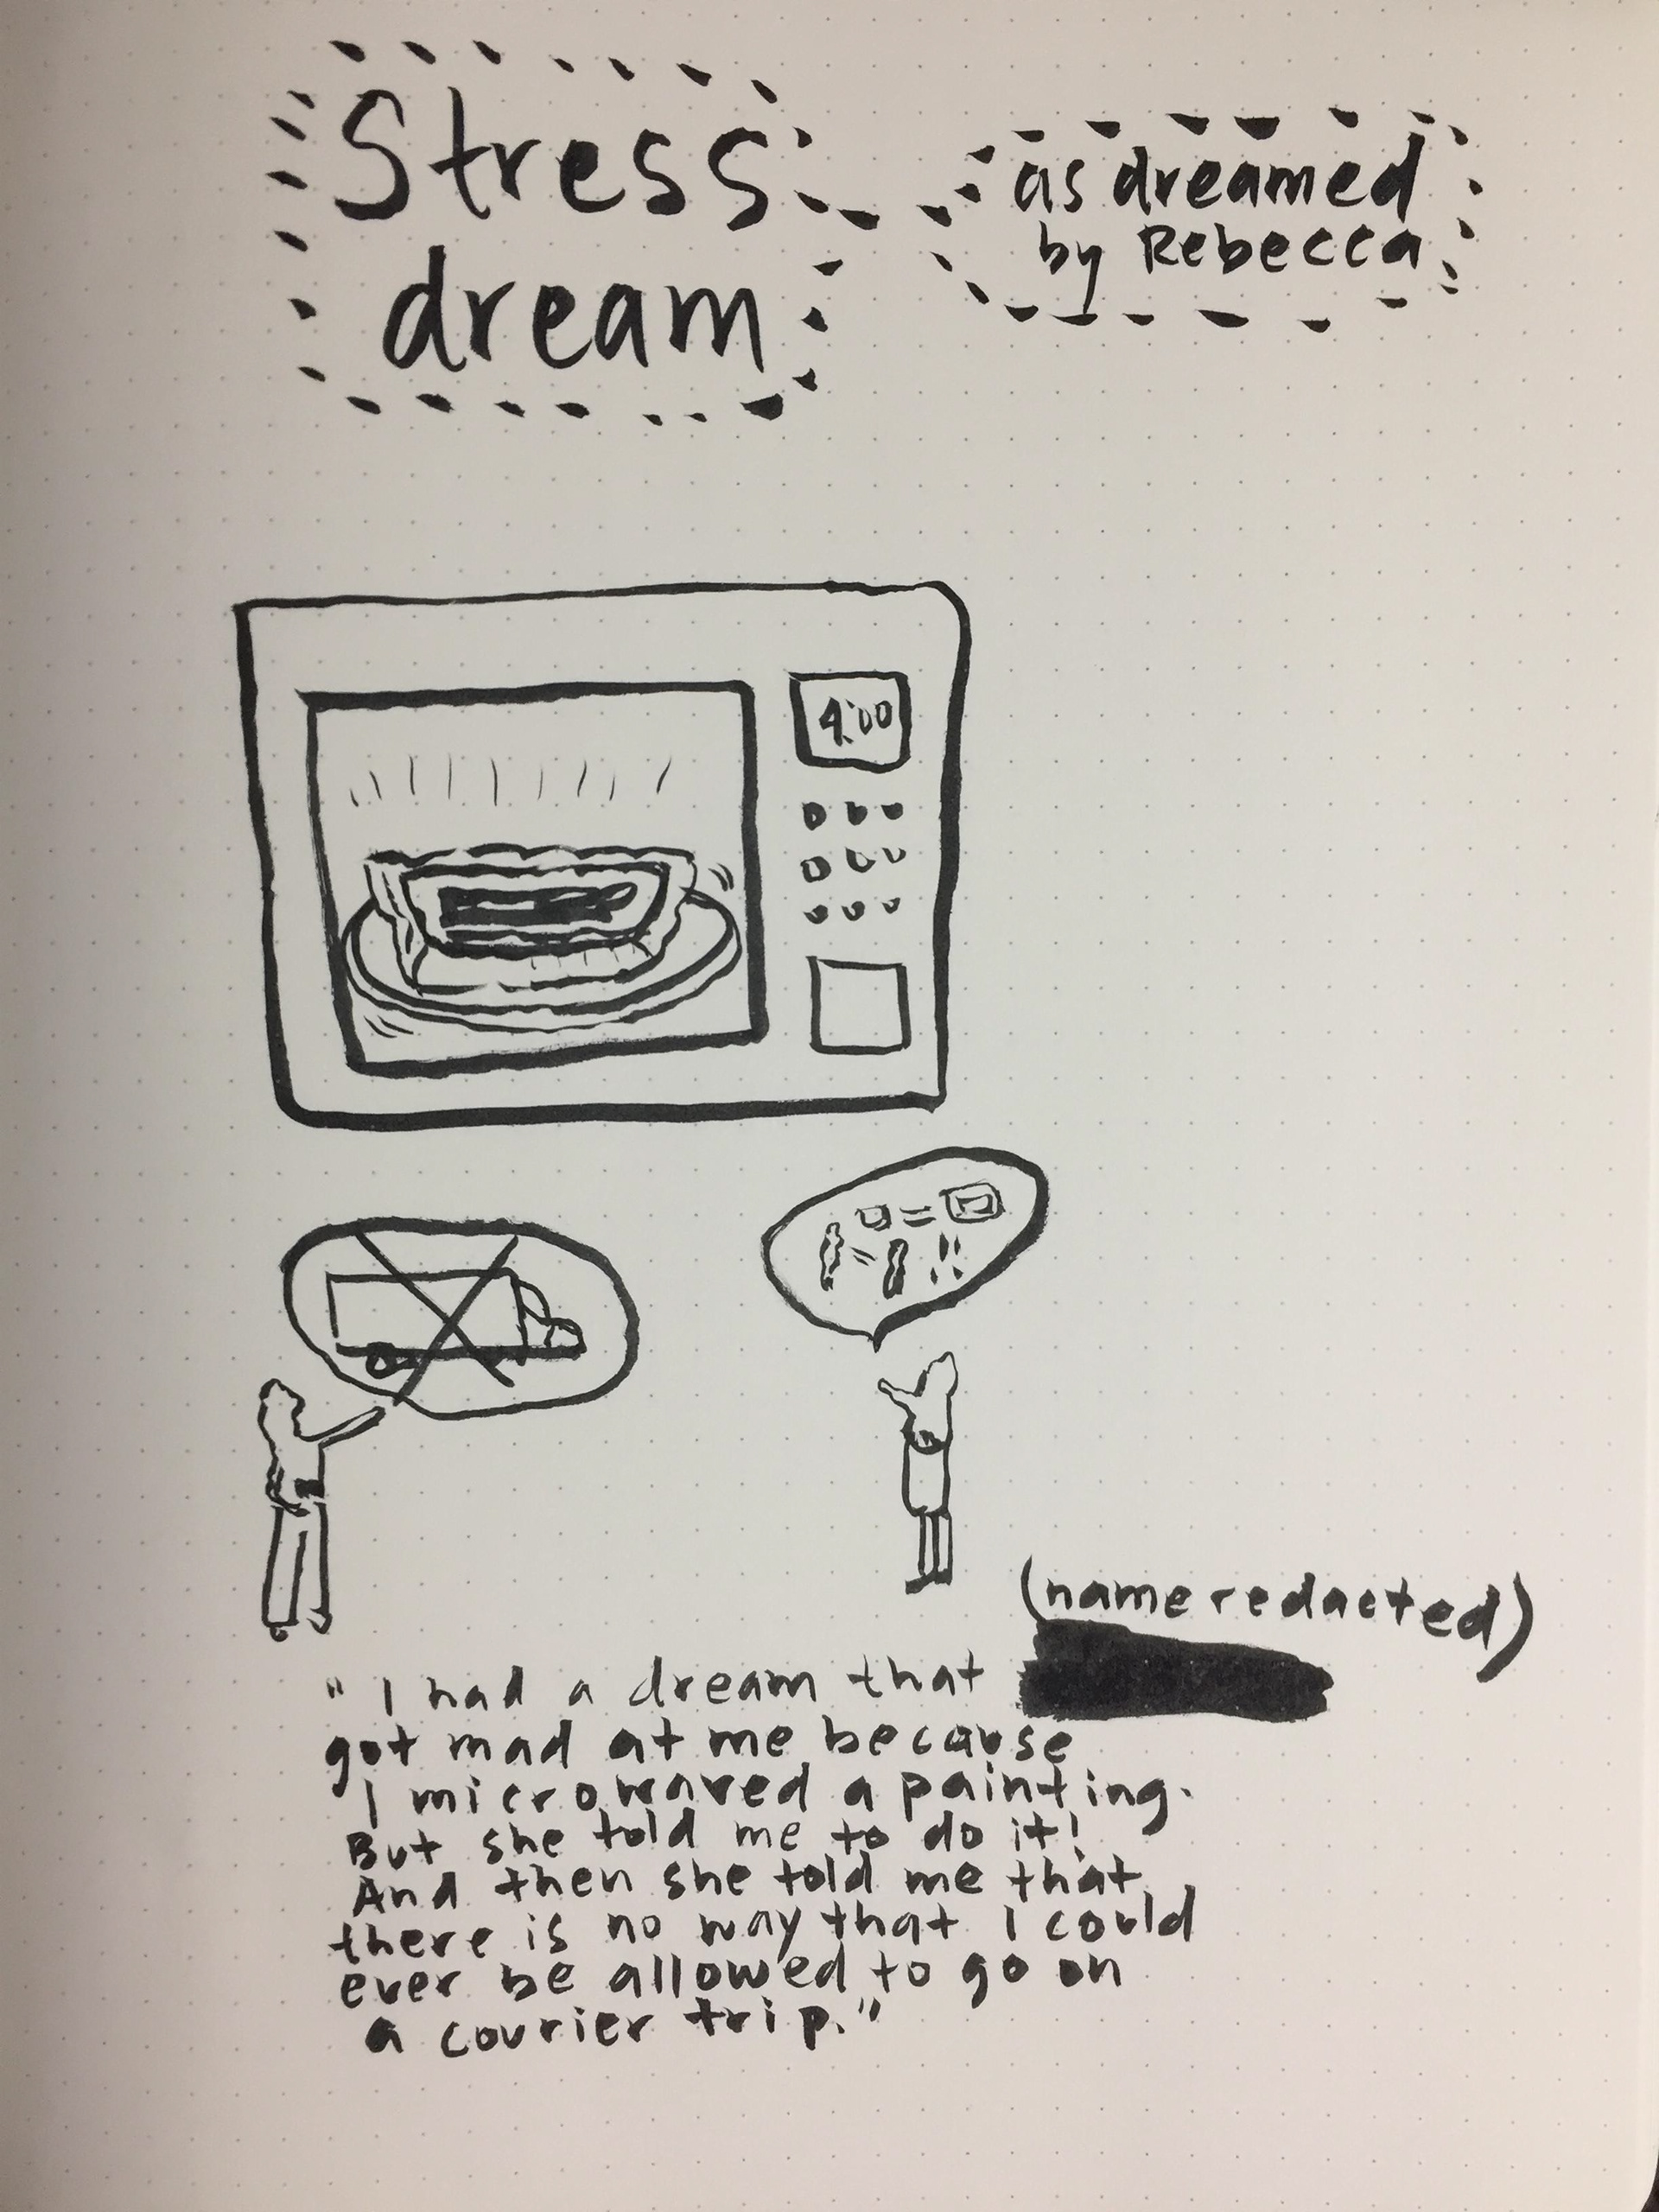 Stress
dream
as dreamed
by Rebecca
4:00
(name redacted)
"I had a dream that
got mad at me because
I microwaved a painting.
But she told me to do it!
And then she told me that
there is no way that I could
ever be allowed to go on
a courier trip."